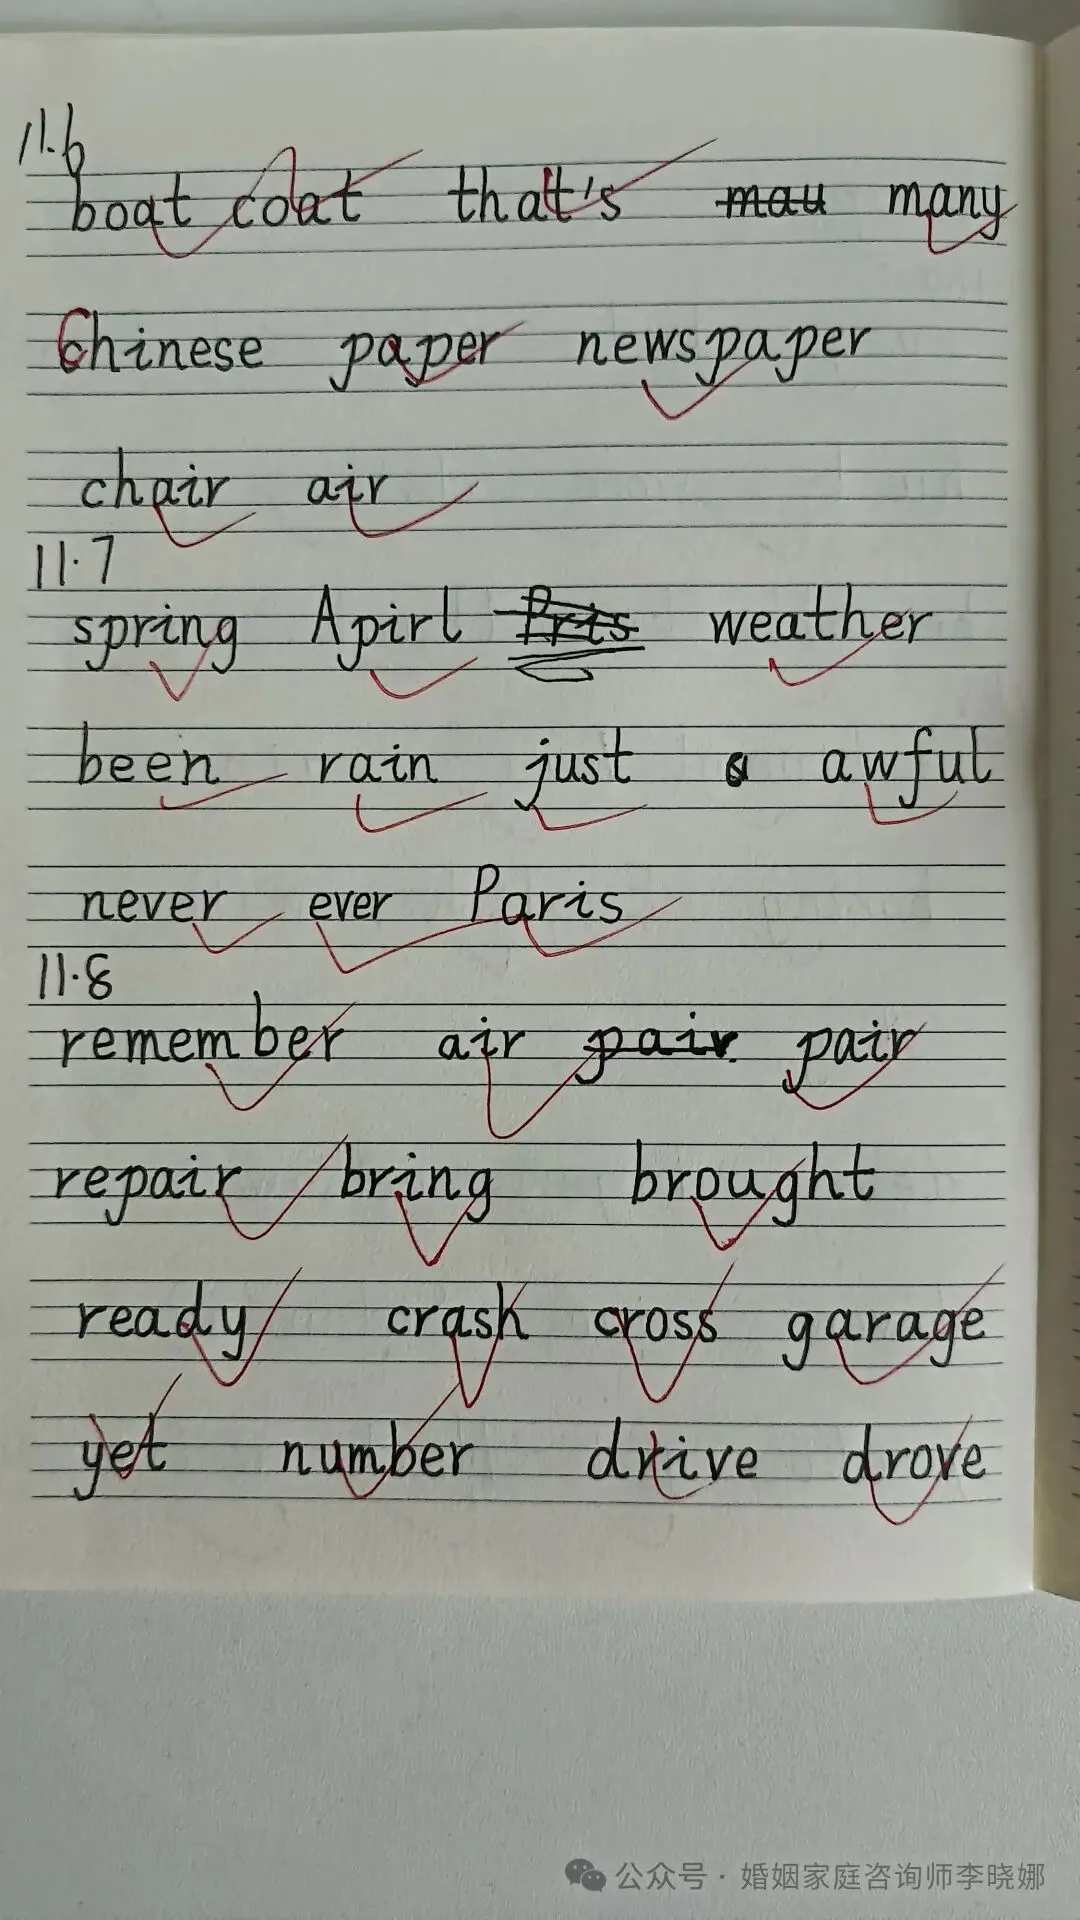 11.6
boat coat that's mau many
Chinese paper newspaper
chair air
11.7
spring Apirl Pris weather
been rain just a awful
never ever Paris
11.8
remember air pair pair
repair bring brought
ready crash cross garage
yet number drive drove
公众号 · 婚姻家庭咨询师李晓娜